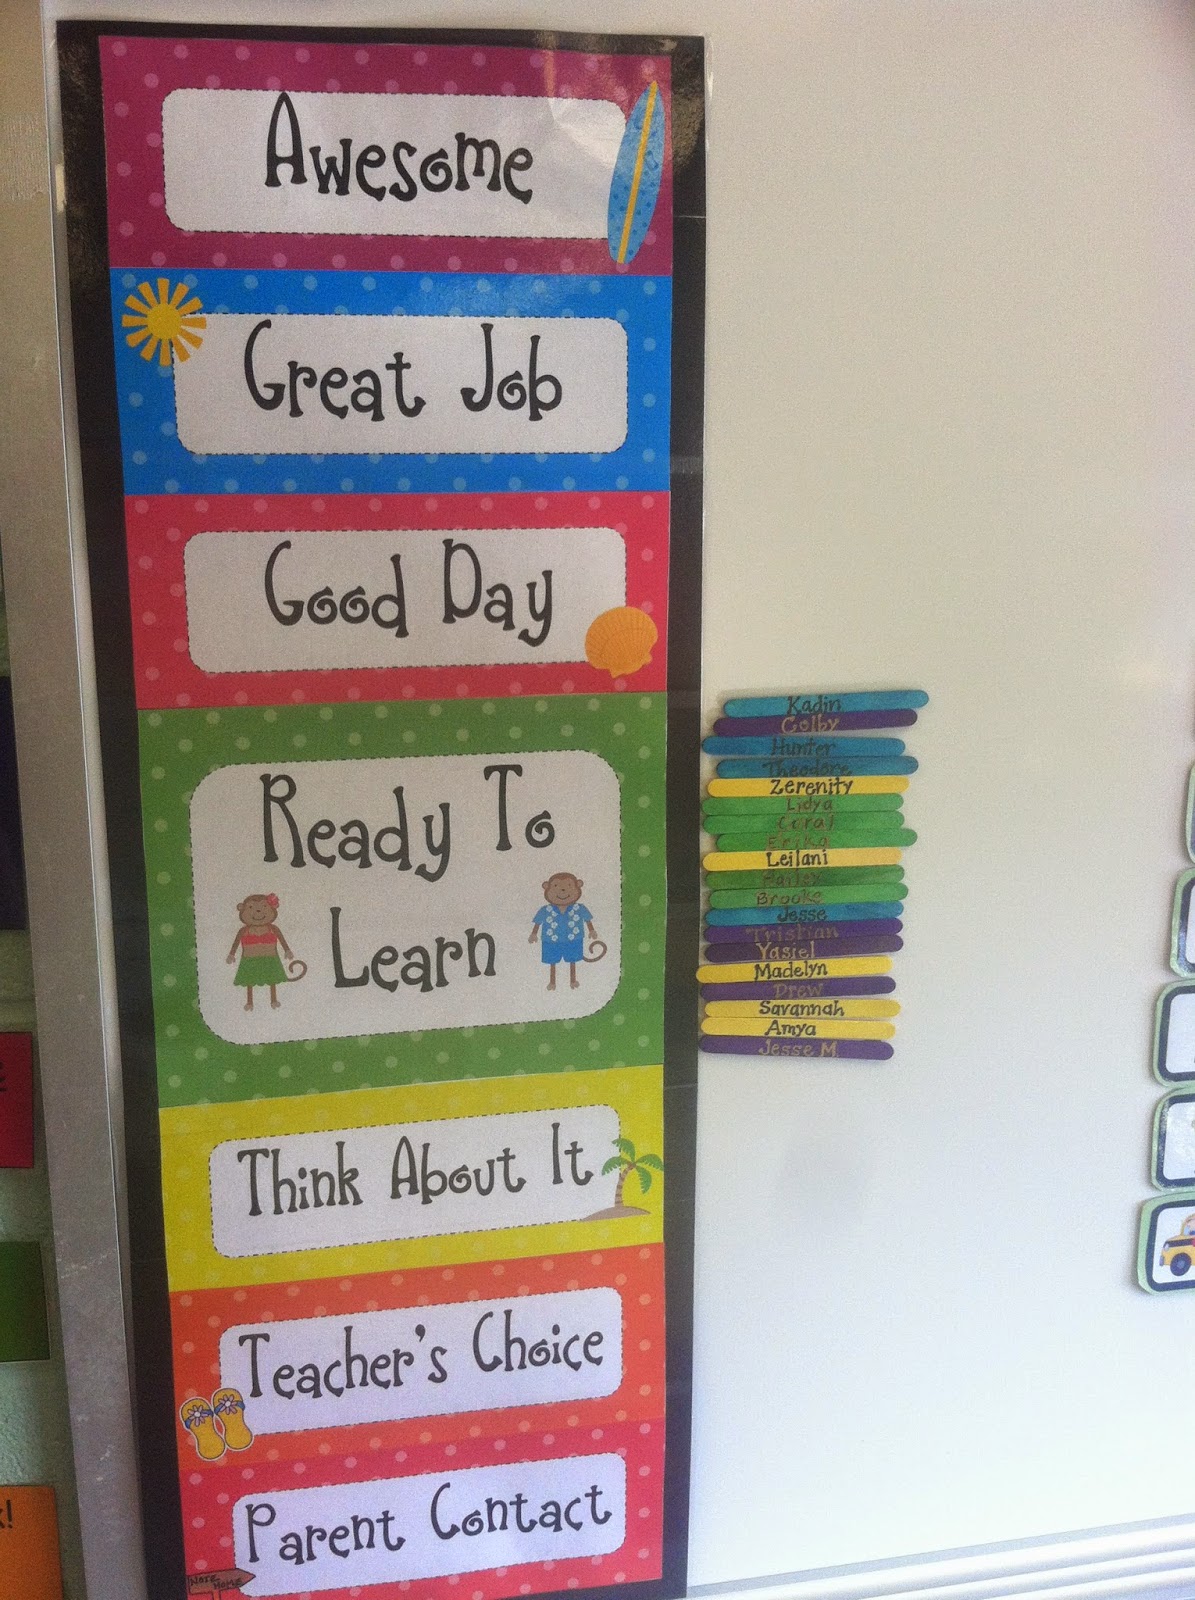 Awesome
Great Job
Good Day
Ready To
Learn
Think About It
Teacher's Choice
Parent Contact
Note
Home
Kadin
Colby
Hunter
Theodore
Zerenity
Lidya
Coral
Erika
Leilani
Hailey
Brooke
Jesse
Tristian
Yasiel
Madelyn
Drew
Savannah
Amya
Jesse M